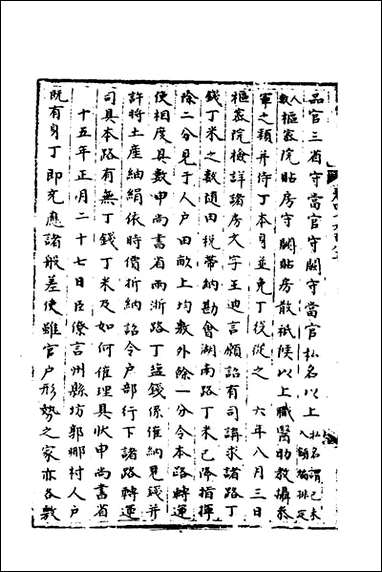 品官三省守當官守闕守當官私名以上私名謂已未入額獨排定
人數樞密院貼房守闕貼房散祗候以上職醫助教攝參
軍之類并侍丁本身並免丁從之　六年八月三日
樞密院檢詳諸房文字王迪言頗詔有司講求諸路丁
錢丁米之數隨田稅帶納勘會湖南路丁米已降指揮
除二分見于人户田畝上均敷外餘一分令本路轉運
使相度具數申尚書省兩浙路丁鹽錢係催納見錢并
許將土產紬絹依時價折納詔令户部行下諸路轉運
司具本路有無丁錢丁米及如何催理具狀申尚書省
十五年正月二十七日臣僚言州縣坊郭鄉村人户
既有身丁即充應諸般差使雖官户形勢之家亦各敷